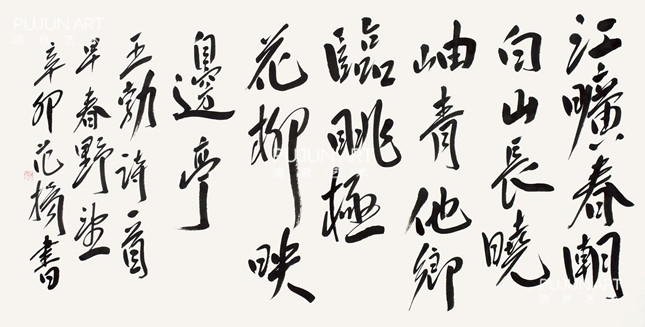 江曠春潮
白山長曉
岫青他鄉
臨眺極
花柳映
邊亭
王勃詩一首
早春野望
辛卯范書
PUJUN ART
PUJUN ART
PUJUN ART